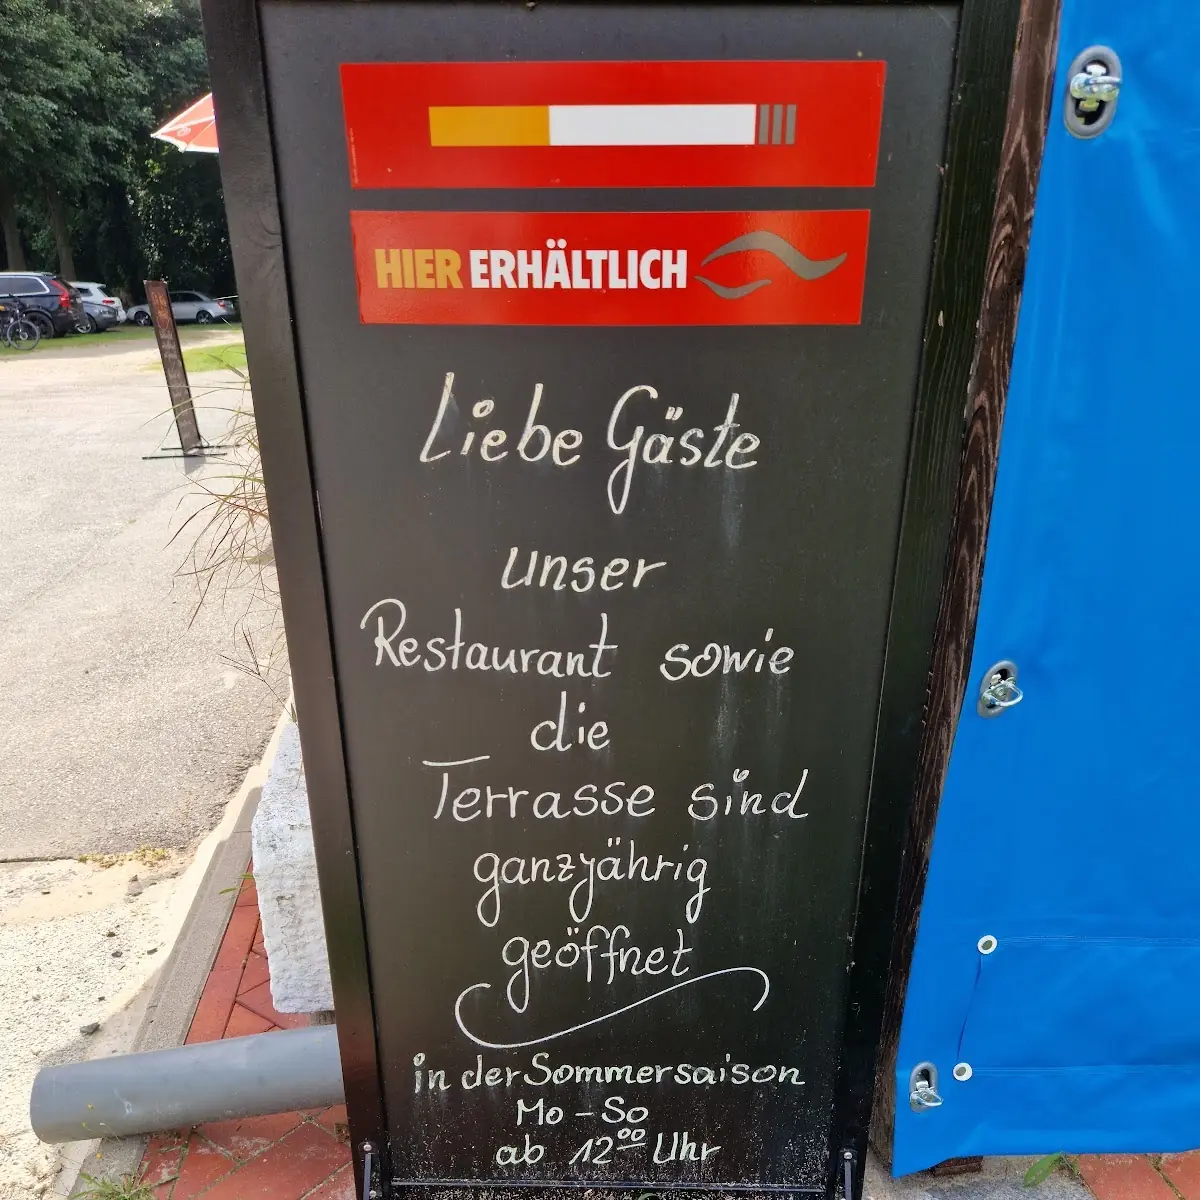 HIER ERHÄLTLICH
Liebe Gäste
unser
Restaurant sowie
die
Terrasse sind
ganzjährig
geöffnet
in der Sommersaison
Mo - So
ab 12⁰⁰ Uhr